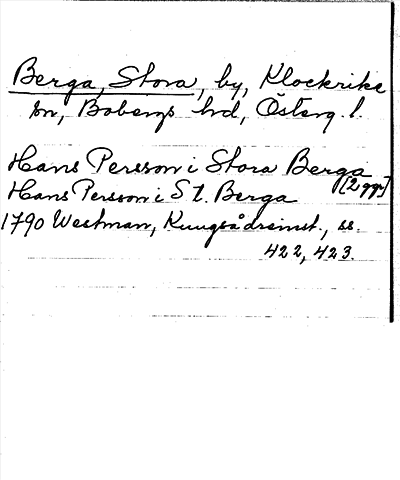 Berga, Stora, by, Klockrike
sn, Bobergs hd, Österg. l.
Hans Persson i Stora Berga
[2 ggr]
Hans Persson i St. Berga
1790 Westman, Kungsådreinst., ss.
422, 423.